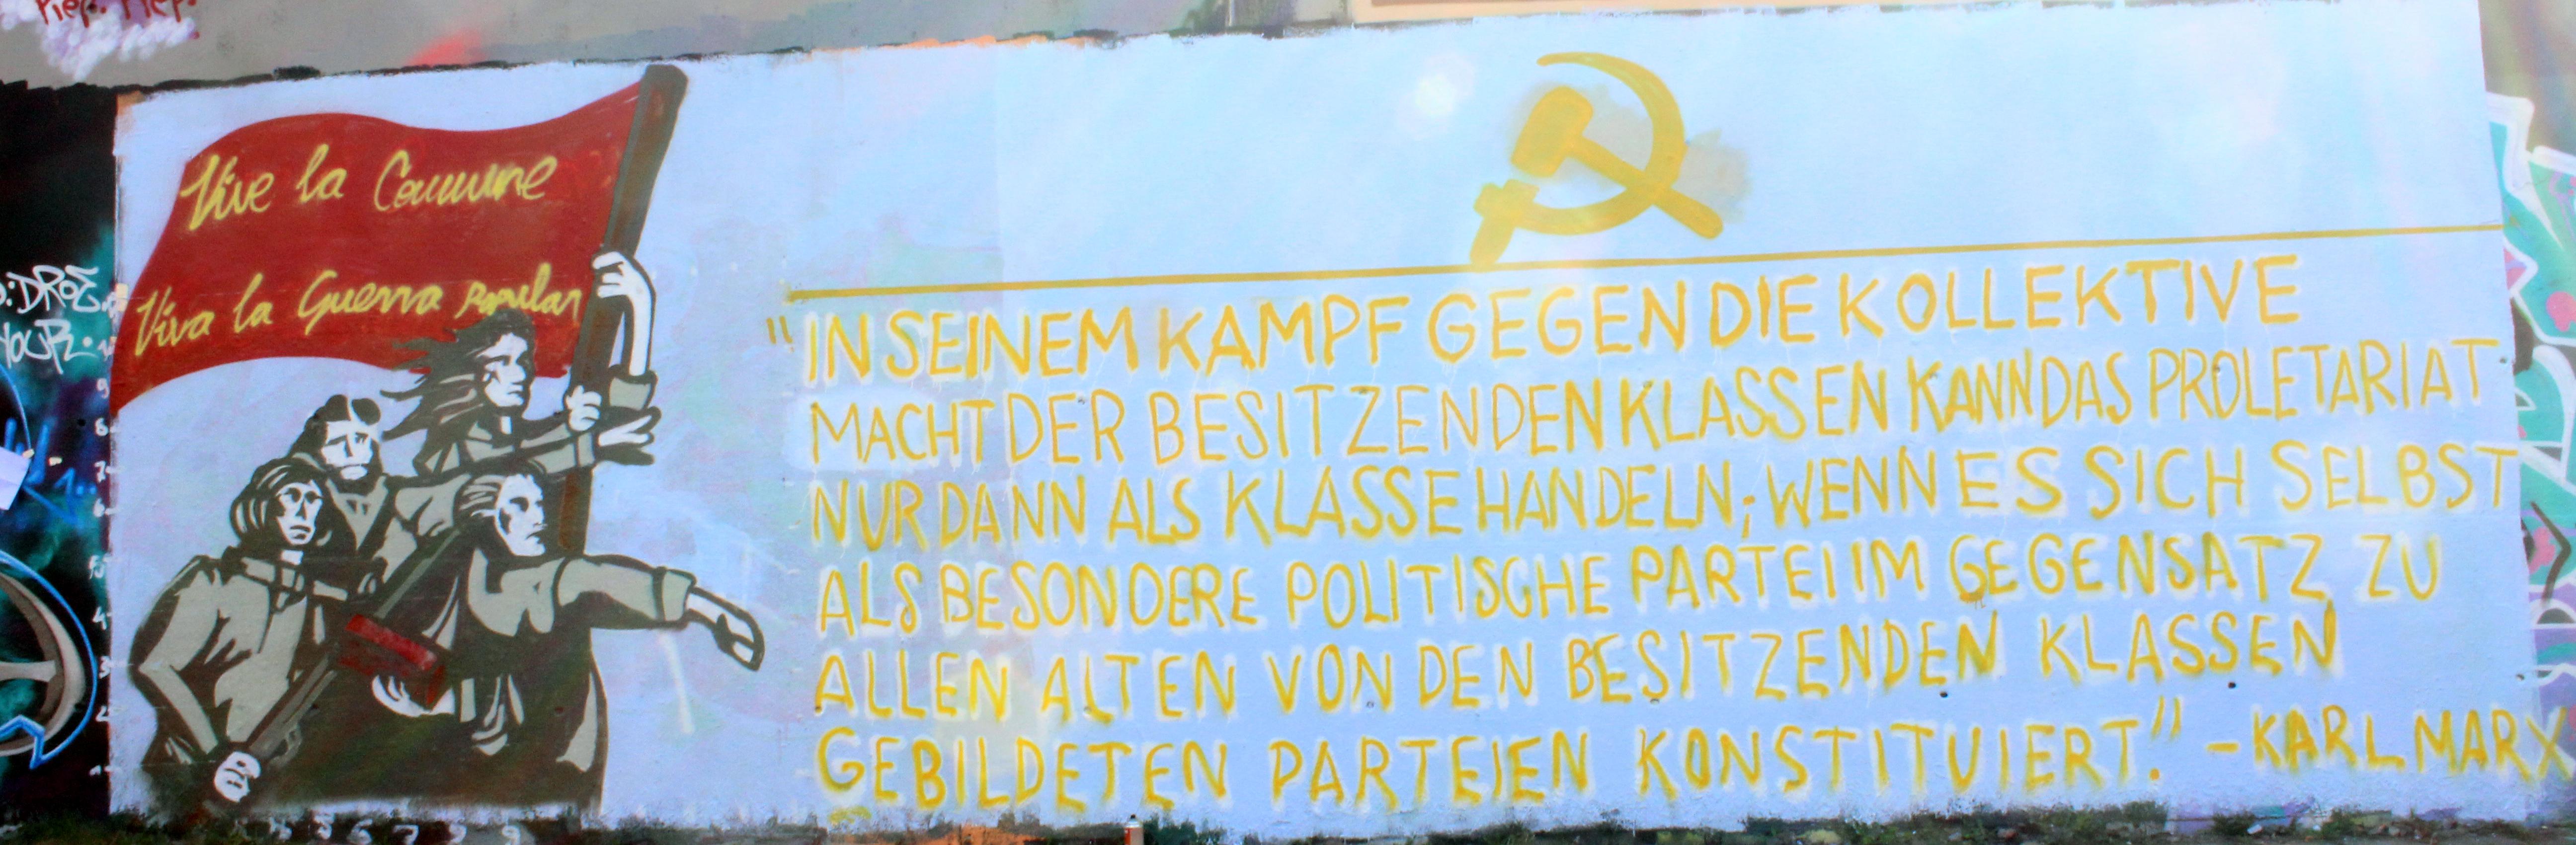 Piep. Piep.
DROE
YOUR.
Vive la Commune
Viva la Guerra popular
"IN SEINEM KAMPF GEGEN DIE KOLLEKTIVE
MACHT DER BESITZENDEN KLASSEN KANN DAS PROLETARIAT
NUR DANN ALS KLASSE HANDELN, WENN ES SICH SELBST
ALS BESONDERE POLITISCHE PARTEI IM GEGENSATZ ZU
ALLEN ALTEN VON DEN BESITZENDEN KLASSEN
GEBILDETEN PARTEIEN KONSTITUIERT." - KARL MARX